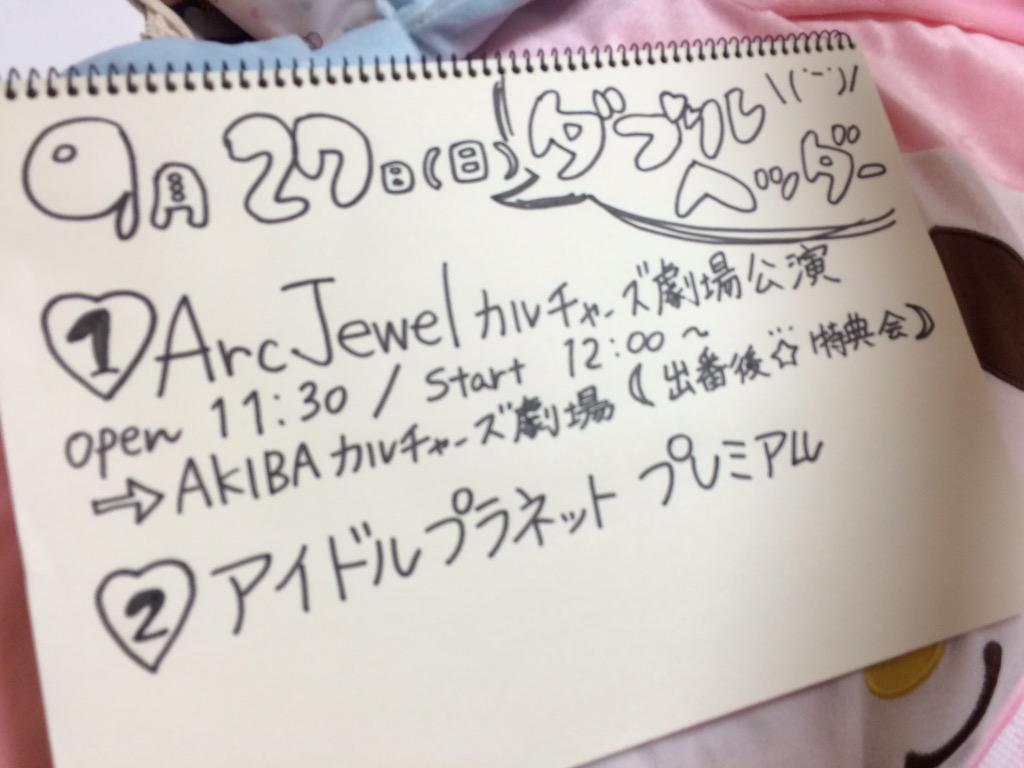 9月27日(日) ダブル
ヘッダー \(¨)/
1 ArcJewel カルチャーズ劇場公演
open 11:30 / start 12:00〜
⇒AKIBAカルチャーズ劇場(出番後☆特典会)
2 アイドルプラネット プレミアム